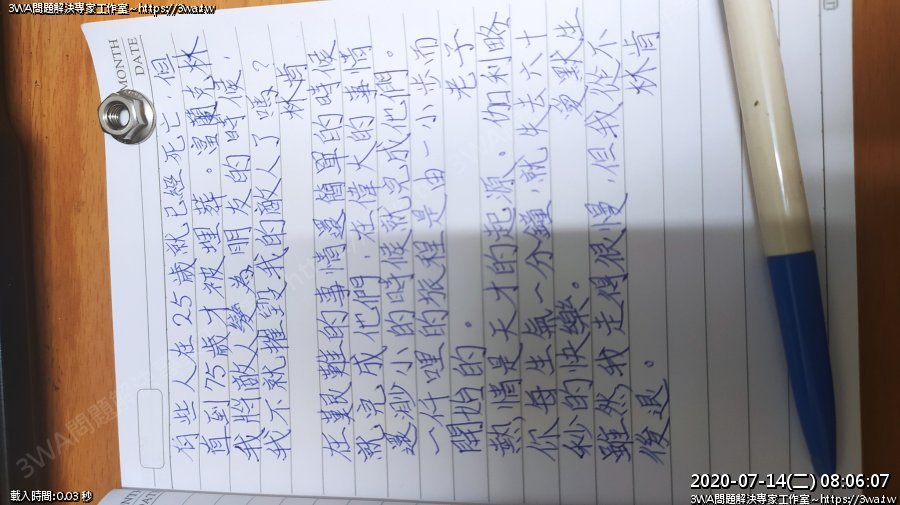 3WA問題解決專家工作室~https://3wa.tw
MONTH
DATE
有些人在25歲就已經死亡,但
直到75歲才被埋葬。富蘭克林
我將敵人變為朋友的時侯,
我不就摧毀我的敵人了嗎?
林肯
在艱難的事情還簡單的時候
就完成他們,在偉大的事情
還渺小的時候就完成他們。
一千哩的旅程是由一小步而
開始的。 老子
熱情是天才的起源。伽利略
你每生氣一分鐘,就失去六十
秒的快樂。 愛默生
雖然我走得很慢,但我從不
後退。 林肯
2020-07-14(二) 08:06:07
載入時間:0.03 秒
3WA問題解決專家工作室~https://3wa.tw